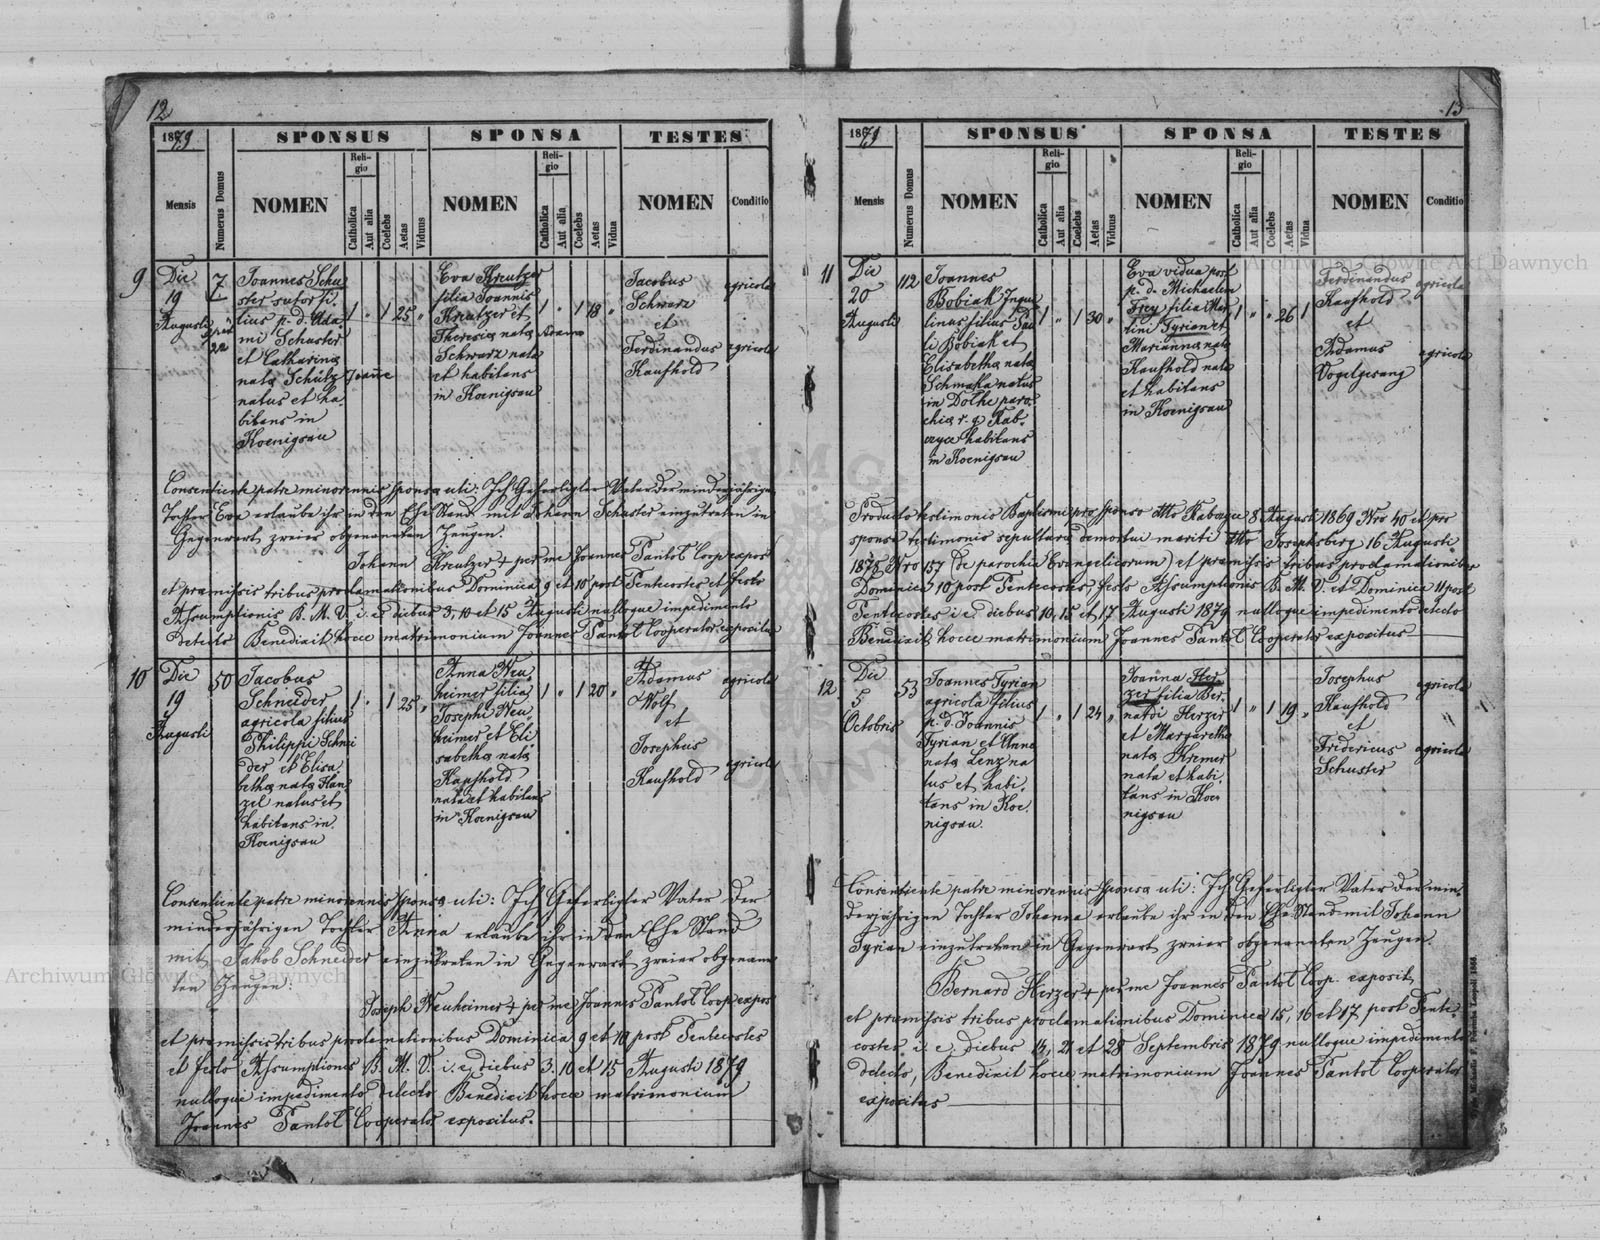 12
1879
SPONSUS
SPONSA
TESTES
Mensis
Numerus Domus
NOMEN
Religio
Catholica
Aut alia
Coelebs
Aetas
Viduus
NOMEN
Religio
Catholica
Aut alia
Coelebs
Aetas
Vidua
NOMEN
Conditio
9
Die
19
Augusti
7
22
Joannes Schu
ster sutor fi
lius p. d. Ada
mi Schuster
et Catharina
nata Schütz
natus et ha
bitans in
Koenigsau
1 " 1 25 "
Eva Kreutzer
filia Joannis
Kreutzer et
Theresia nata
Schwarz nata
et habitans
in Koenigsau
1 " 1 18 "
Jacobus
Schwarz
et
Ferdinandus
Kaufhold
agricola
agricola
Consentiente patre minorennis sponsa uti: Ich Gefertigter Vater der minderjährigen
Tochter Eva erlaube ihr in den Ehe Stand mit Johann Schuster einzutreten in
Gegenwart zweier obgenannten Zeugen.
Johann Kreutzer + per me Joannes Pantol Coop expos
et præmissis tribus proclamationibus Dominica 9 et 10 post Pentecostes et festo
Assumptionis B. M. V. i. e diebus 3, 10 et 15 Augusti nulloque impedimento
detecto Benedixit hocce matrimonium Joannes Pantol Cooperator expositus
10
Die
19
Augusti
50
Jacobus
Schneider
agricola filius
Philippi Schnei
der et Elisa
betha nata Han
zel natus et
habitans in
Koenigsau
1 " 1 25 "
Anna Neu
heimer filia
Josephi Neu
heimer et Eli
sabetha nata
Kaufhold
nata et habitans
in Koenigsau
1 " 1 20 "
Adamus
Wolf
et
Josephus
Kaufhold
agricola
agricola
Consentiente patre minorennis sponsa uti: Ich Gefertigter Vater der
minderjährigen Tochter Anna erlaube ihr in den Ehe Stand
mit Jakob Schneider einzutreten in Gegenwart zweier obgenann
ten Zeugen:
Joseph Neuheimer + per me Joannes Pantol Coop expos
et præmissis tribus proclamationibus Dominica 9 et 10 post Pentecostes
et festo Assumptiones B. M. V. i. e, diebus 3. 10 et 15 Augusti 1879
nulloque impedimento detecto Benedixit hocce matrimonium
Joannes Pantol Cooperator expositus.
13
1879
SPONSUS
SPONSA
TESTES
Mensis
Numerus Domus
NOMEN
Religio
Catholica
Aut alia
Coelebs
Aetas
Viduus
NOMEN
Religio
Catholica
Aut alia
Coelebs
Aetas
Vidua
NOMEN
Conditio
11
Die
20
Augusti
112
Joannes
Bobiak Inqui
linus filius Pau
li Bobiak et
Elisabetha nata
natus
in Dolhe paro
chia r. g
habitans
in Koenigsau
1 " 1 30 "
Eva vidua post
p. d. Michaelem
Frey filia Mar
tini Tyrian et
Marianna nata
Kaufhold nata
et habitans
in Koenigsau
1 " " 26 1
Ferdinandus
Kaufhold
et
Adamus
Vogelgesang
agricola
agricola
Producto testimonio Baptismi pro sponso dtto 8 Augusti 1869 Nro 40 et pro
sponsa testimonio sepultura demortui mariti dtto Josephsberg 16 Augusti
1878 Nro 157 (de parochia Evangelicorum) et præmissis tribus proclamationibus
Dominica 10 post Pentecostes, festo Assumptionis B. M. V. et Dominica 11 post
Pentecostes i. e. diebus 10, 15 et 17 Augusti 1879 nulloque impedimento detecto
Benedixit hocce matrimonium Joannes Pantol Cooperator expositus
12
Die
5
Octobris
53
Joannes Tyrian
agricola filius
p. d. Joannis
Tyrian et Anna
nata Lenz na
tus et habi
tans in Koe
nigsau.
1 " 1 24 "
Joanna Her
zer filia Ber
nardi Herzer
et Margaretha
nata Kremer
nata et habi
tans in Koe
nigsau
1 " 1 19 "
Josephus
Kaufhold
et
Fridericus
Schuster
agricola
agricola
Consentiente patre minorennis sponsa uti: Ich Gefertigter Vater der min
derjährigen Tochter Johanna erlaube ihr in den Ehe Stand mit Johann
Tyrian einzutreten in Gegenwart zweier obgenannten Zeugen.
Bernard Herzer + per me Joannes Pantol Coop. exposit,
et præmissis tribus proclamationibus Dominica 15, 16 et 17 post Pente
costes i. e, diebus 14, 21 et 28 Septembris 1879 nulloque impedimento
detecto, Benedixit hocce matrimonium Joannes Pantol Cooperator
expositus
Archiwum Główne Akt Dawnych
Archiwum Główne Akt Dawnych